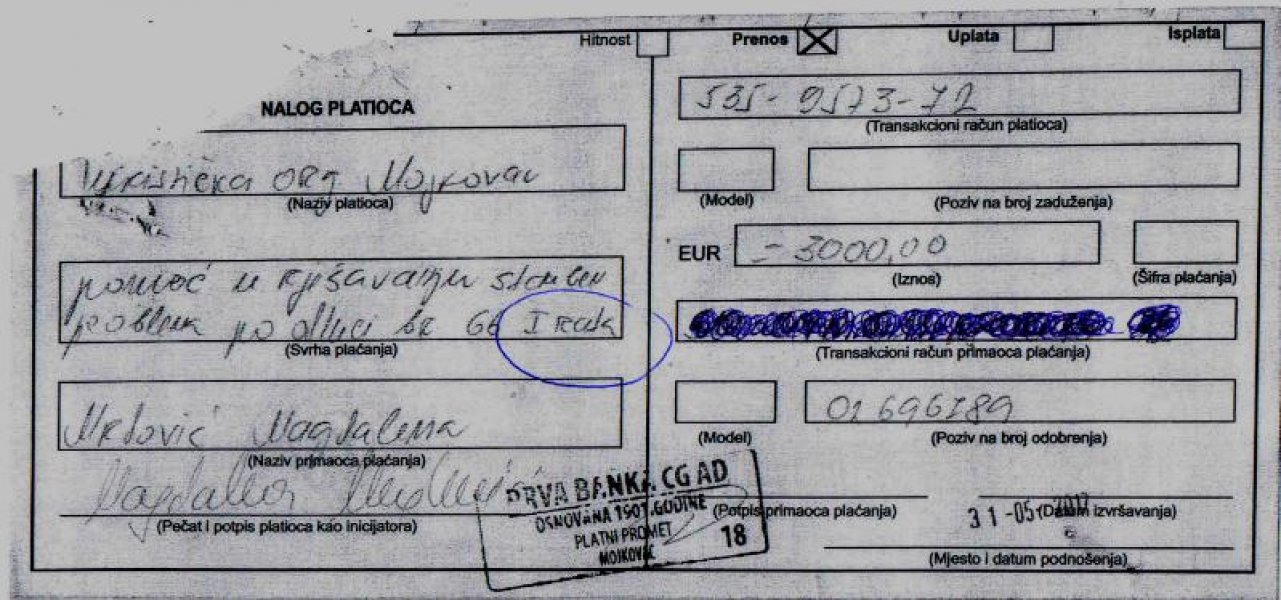 Hitnost Prenos Uplata Isplata
NALOG PLATIOCA
535-9573-72
(Transakcioni račun platioca)
Turistička ORg Mojkovac
(Naziv platioca)
(Model)
(Poziv na broj zaduženja)
EUR = 3000,00
(Iznos)
(Šifra plaćanja)
pomoć u Rješavanju stamben
problema po odluci br 66 I rata
(Svrha plaćanja)
(Transakcioni račun primaoca plaćanja)
Magdalena
(Naziv primaoca plaćanja)
(Model)
01696789
(Poziv na broj odobrenja)
Magdalena
(Pečat i potpis platioca kao inicijatora)
PRVA BANKA CG AD
OSNOVANA 1901.GODINE
PLATNI PROMET
MOJKOVAC
18
(Potpis primaoca plaćanja)
31-05-2017
(Datum izvršavanja)
(Mjesto i datum podnošenja)